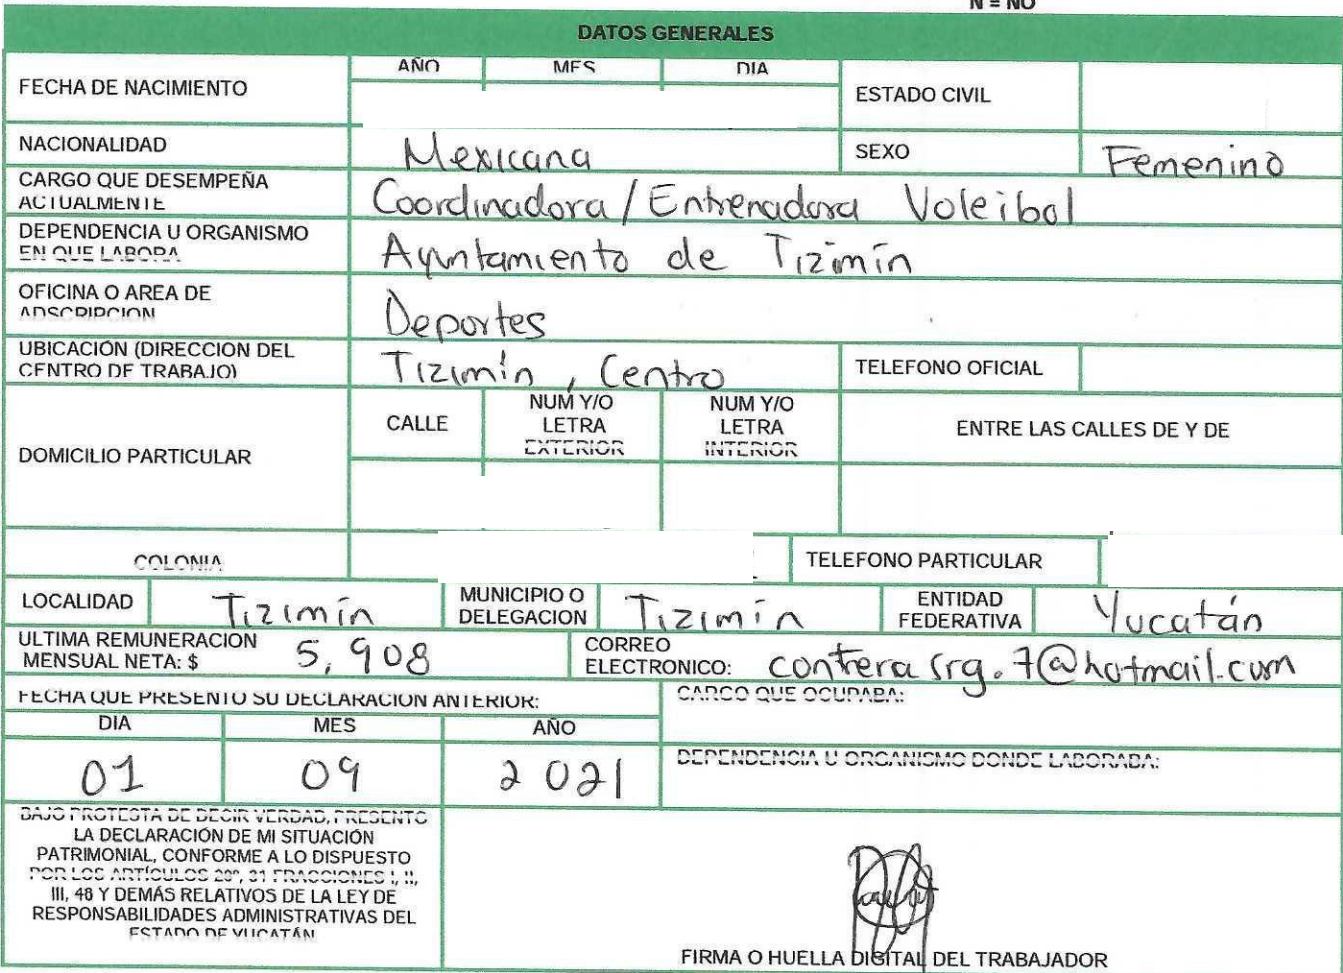 N = NO
DATOS GENERALES
FECHA DE NACIMIENTO
AÑO MES DIA
ESTADO CIVIL
NACIONALIDAD Mexicana SEXO Femenino
CARGO QUE DESEMPEÑA
ACTUALMENTE
Coordinadora / Entrenadora Voleibol
DEPENDENCIA U ORGANISMO
EN QUE LABORA
Ayuntamiento de Tizimín
OFICINA O AREA DE
ADSCRIPCION
Deportes
UBICACIÓN (DIRECCION DEL
CENTRO DE TRABAJO)
Tizimín , Centro
TELEFONO OFICIAL
DOMICILIO PARTICULAR
CALLE
NUM Y/O
LETRA
EXTERIOR
NUM Y/O
LETRA
INTERIOR
ENTRE LAS CALLES DE Y DE
COLONIA
TELEFONO PARTICULAR
LOCALIDAD Tizimín
MUNICIPIO O
DELEGACION
Tizimín
ENTIDAD
FEDERATIVA
Yucatán
ULTIMA REMUNERACION
MENSUAL NETA: $
5,908
CORREO
ELECTRONICO:
contrerasrg.7@hotmail.com
FECHA QUE PRESENTO SU DECLARACION ANTERIOR:
CARGO QUE OCUPABA:
DIA MES AÑO
01 09 2021
DEPENDENCIA U ORGANISMO DONDE LABORABA:
BAJO PROTESTA DE DECIR VERDAD, PRESENTO
LA DECLARACIÓN DE MI SITUACIÓN
PATRIMONIAL, CONFORME A LO DISPUESTO
POR LOS ARTÍCULOS 29º, 31 FRACCIONES I, II,
III, 48 Y DEMÁS RELATIVOS DE LA LEY DE
RESPONSABILIDADES ADMINISTRATIVAS DEL
ESTADO DE YUCATÁN
FIRMA O HUELLA DIGITAL DEL TRABAJADOR